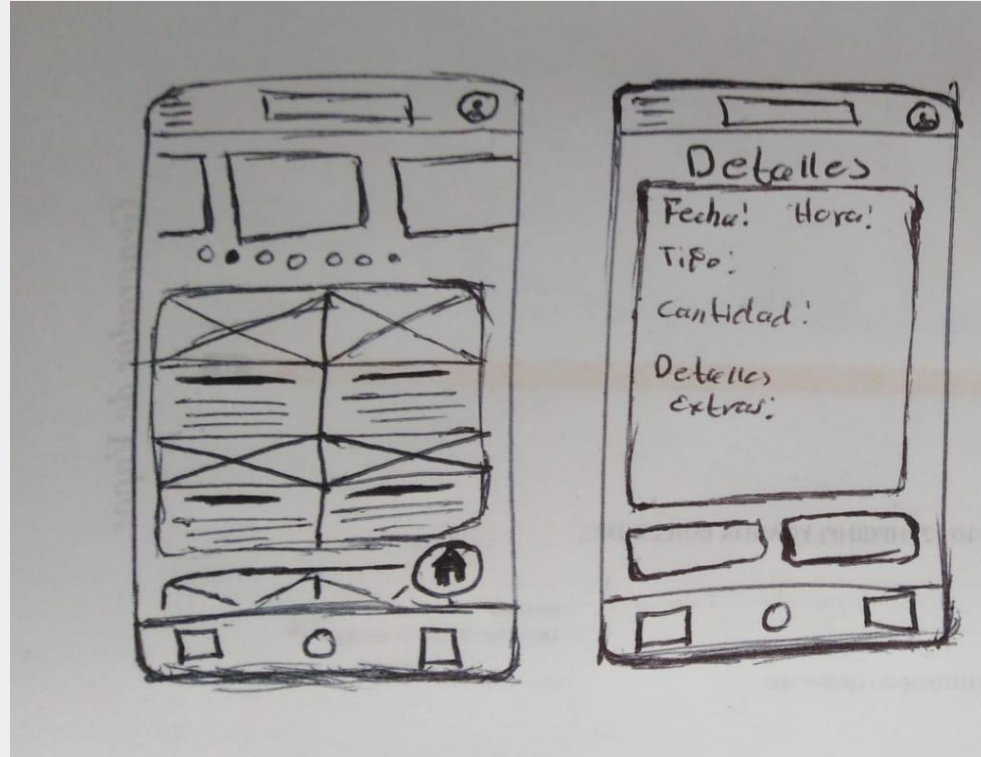 Detalles
Fecha: Hora:
Tipo:
Cantidad:
Detalles
extras: